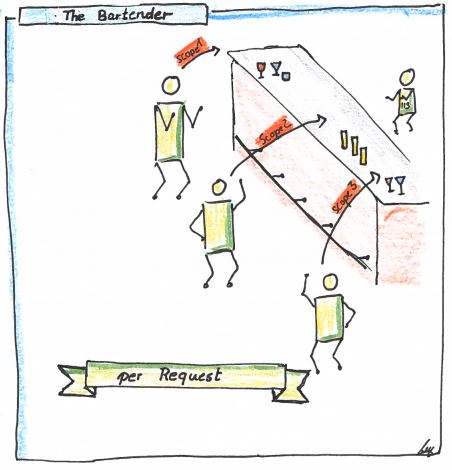 The Bartender
Scope 1
Scope 2
Scope 3
per Request